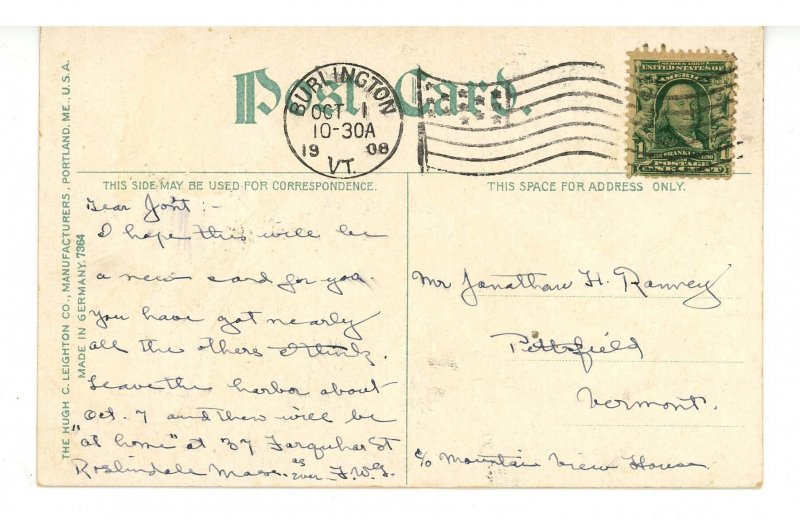 Post Card.
BURLINGTON
OCT 1
10-30A
19 08
VT.
SERIES 1902
UNITED STATES OF
AMERICA
1
FRANKLIN
POSTAGE
ONE CENT
THE HUGH C. LEIGHTON CO., MANUFACTURERS, PORTLAND, ME., U.S.A.
MADE IN GERMANY. 7364
THIS SIDE MAY BE USED FOR CORRESPONDENCE.
Dear Jont :-
I hope this will be
a new card for you.
You have got nearly
all the others I think.
Leave the harbor about
Oct. 7 and then will be
"at home" at 37 Farquhar St
Roslindale Mass. as ever F.W.G.
THIS SPACE FOR ADDRESS ONLY.
Mr Jonathan H. Ranney
Pittsfield
Vermont.
c/o Mountain View House